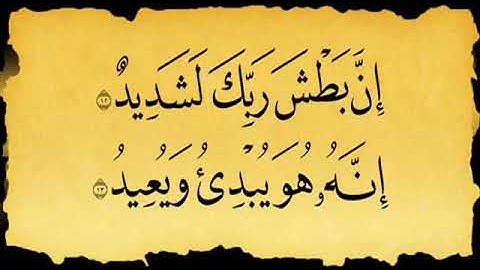 إِنَّ بَطْشَ رَبِّكَ لَشَدِيدٌ ۝١٢
إِنَّهُۥ هُوَ يُبْدِئُ وَيُعِيدُ ۝١٣